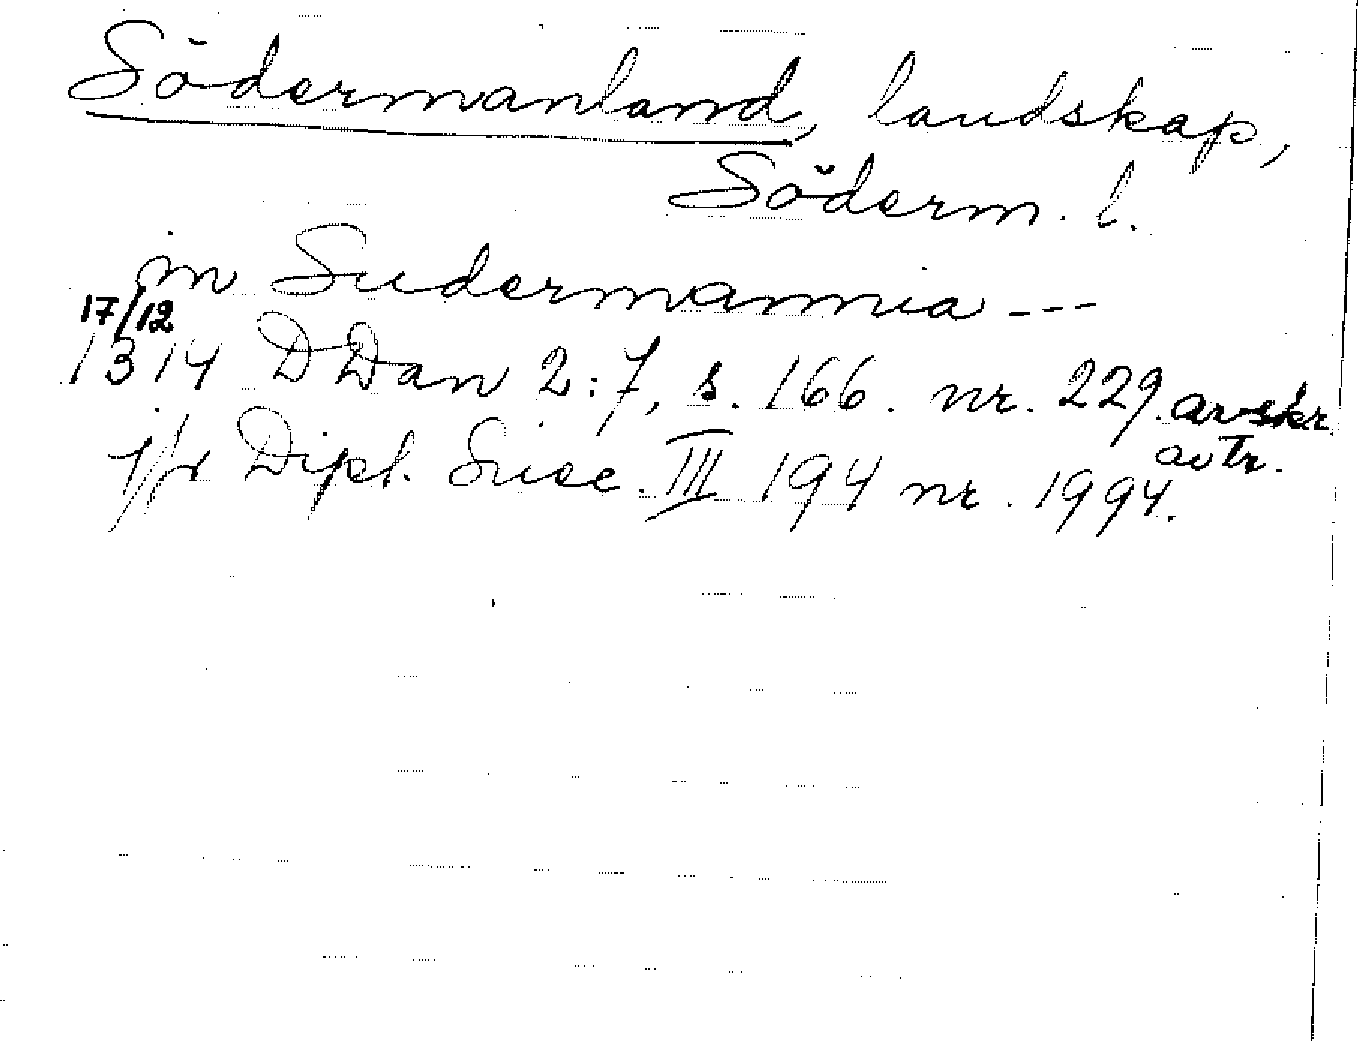 Södermanland, landskap,
Söderm. l.
in Sudermannia ---
17/12
1314 DDan 2:7, s. 166. nr. 229. avskr.
av tr.
Jfr Dipl. Suec. III 194 nr. 1994.